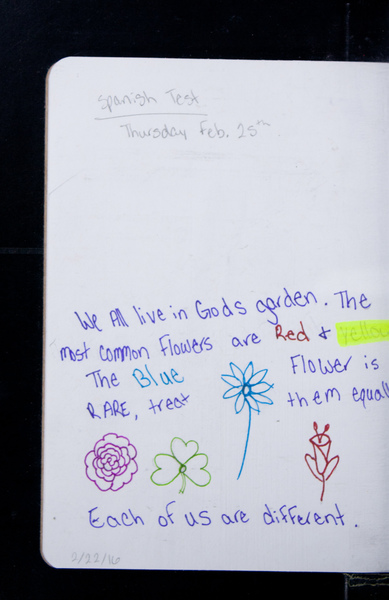 Spanish Test
Thursday Feb. 25th
We All live in Gods garden. The
most common Flowers are Red & yellow
The Blue Flower is
RARE, treat them equall
Each of us are different.
2/22/16